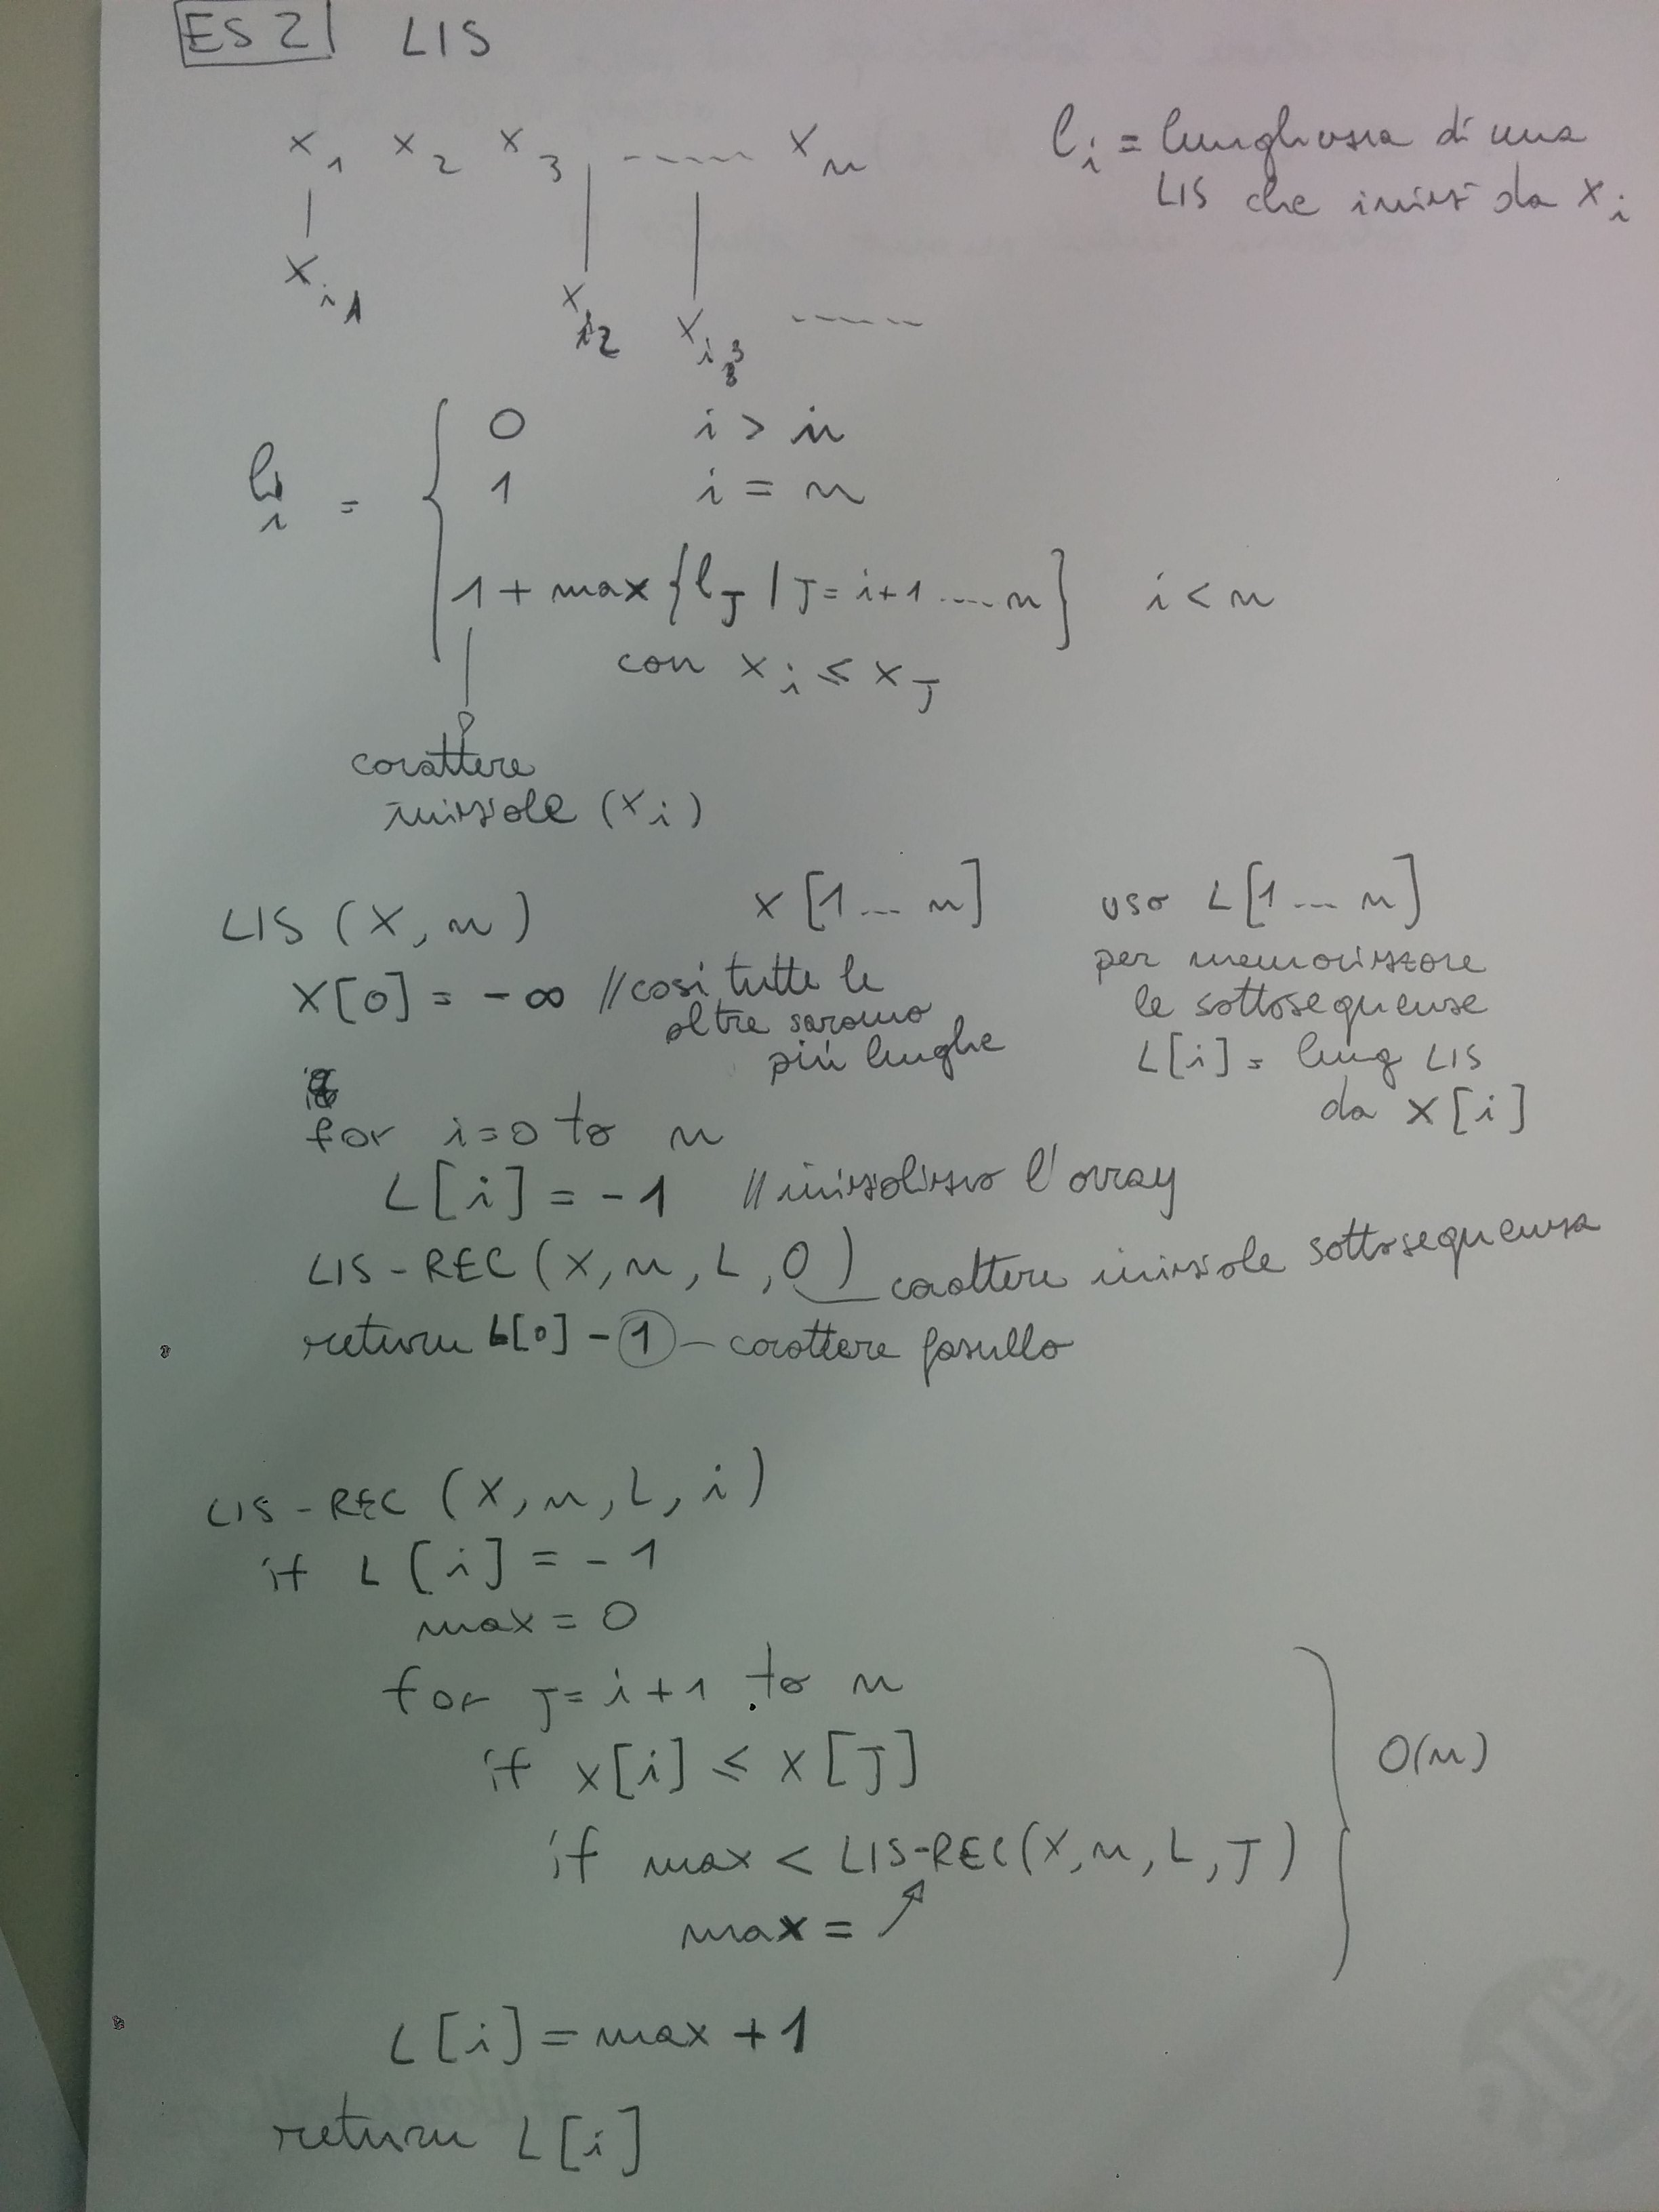 ES 2 LIS
x1 x2 x3 ----- xn
li = lunghezza di una
LIS che inizi da xi
xi1 xi2 xi3 -----
li =
0 i > n
1 i = n
1 + max {lJ | J = i+1 .... n} i < n
con xi ≤ xJ
carattere
iniziale (xi)
LIS (X, n) X [1 ... n]
uso L[1 ... n]
per memorizzare
le sottosequenze
L[i] = lung LIS
da X[i]
X[0] = -∞ //così tutte le
altre saranno
più lunghe
for i=0 to n
L[i] = -1 //inizializzo l'array
LIS-REC (X, n, L, 0) carattere iniziale sottosequenza
return L[0] - 1 - carattere fasullo
LIS-REC (X, n, L, i)
if L[i] = -1
max = 0
for J = i+1 to n
if x[i] ≤ x[J]
if max < LIS-REC(X, n, L, J)
max =
O(n)
L[i] = max + 1
return L[i]